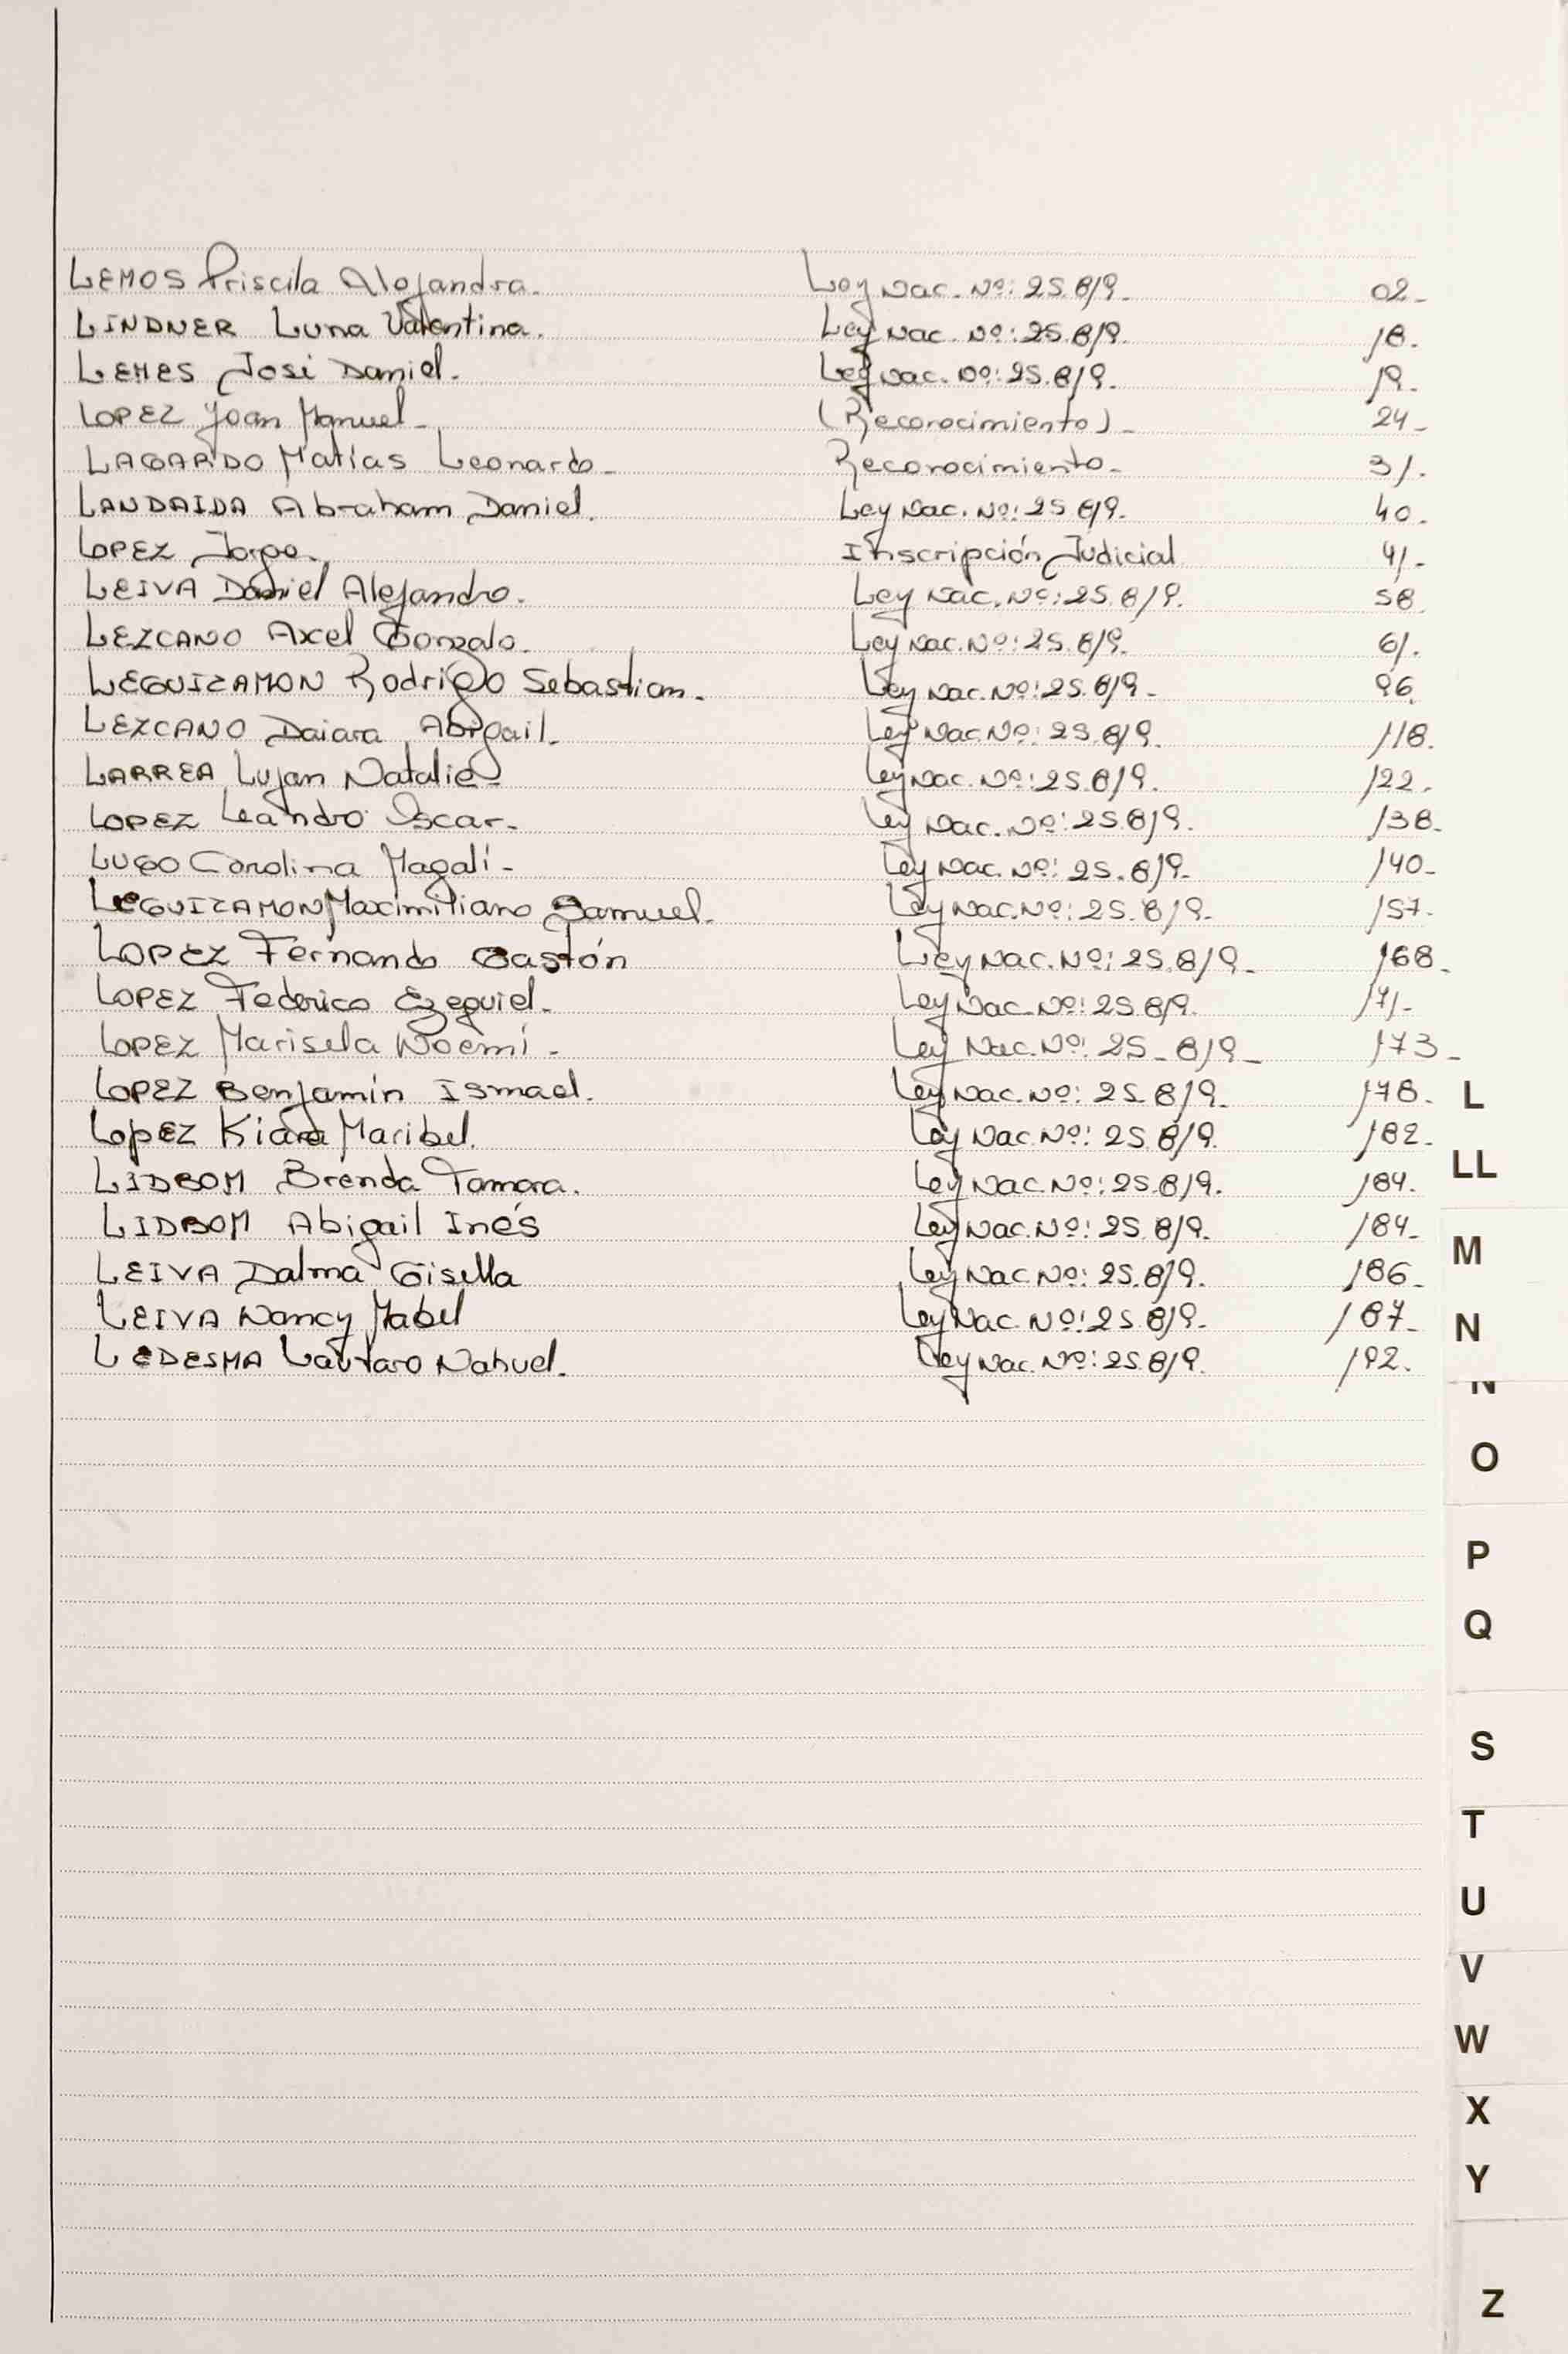 LEMOS Priscila Alejandra. Ley Nac. Nº: 25.819. 02.
LINDNER Luna Valentina. Ley Nac. Nº: 25.819. 18.
LEMES José Daniel. Ley Nac. Nº: 25.819. 19.
LOPEZ Joan Manuel. (Reconocimiento). 24.
LAGARDO Matías Leonardo. Reconocimiento. 31.
LANDAIDA Abraham Daniel. Ley Nac. Nº: 25.819. 40.
LOPEZ Jorge. Inscripción Judicial 41.
LEIVA Daniel Alejandro. Ley Nac. Nº: 25.819. 58.
LEZCANO Axel Gonzalo. Ley Nac. Nº: 25.819. 61.
LEGUIZAMON Rodrigo Sebastian. Ley Nac. Nº: 25.819. 96.
LEZCANO Daiara Abigail. Ley Nac. Nº: 25.819. 118.
LARREA Lujan Natalie. Ley Nac. Nº: 25.819. 122.
LOPEZ Leandro Oscar. Ley Nac. Nº: 25.819. 138.
LUGO Carolina Magalí. Ley Nac. Nº: 25.819. 140.
LEGUIZAMON Maximiliano Samuel. Ley Nac. Nº: 25.819. 157.
LOPEZ Fernando Gastón Ley Nac. Nº: 25.819. 168.
LOPEZ Federico Ezequiel. Ley Nac. Nº: 25.819. 171.
LOPEZ Marisela Noemí. Ley Nac. Nº: 25.819. 173.
LOPEZ Benjamín Ismael. Ley Nac. Nº: 25.819. 178.
LOPEZ Kiara Maribel. Ley Nac. Nº: 25.819. 182.
LIDBOM Brenda Tamara. Ley Nac. Nº: 25.819. 184.
LIDBOM Abigail Inés Ley Nac. Nº: 25.819. 184.
LEIVA Dalma Gisella Ley Nac. Nº: 25.819. 186.
LEIVA Nancy Mabel Ley Nac. Nº: 25.819. 187.
LEDESMA Lautaro Nahuel. Ley Nac. Nº: 25.819. 192.
L
LL
M
N
N
O
P
Q
S
T
U
V
W
X
Y
Z